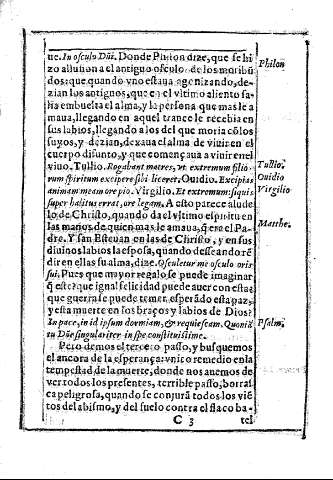 ue. In osculo Dñi. Donde Philon dize, que se hi
zo allusion a el antiguo osculo de los moribũ
dos: que quando vno estaua agonizando, de-
zian los antiguos, que en el vltimo aliento sa-
lia embuelta el alma, y la persona que mas le a
maua, llegando en aquel trance le recebia en
sus labios, llegando a los del que moria cõ los
suyos, y dezian, dexaua el alma de viuir en el
cuerpo difunto, y que començaua a viuir en el
viuo. Tullio. Rogabant matres, vt extremum filio-
rum spiritum excipere sibi liceret. Ouidio. Excipias
animam meam ore pio. Virgilio. Et extremum: si quis
super halitus errat, ore legam. A esto parece alude
lo de Christo, quando da el vltimo espiritu en
las manos de quien mas le amaua, q̃ era el Pa-
dre. Y san Esteuan en las de Christo, y en sus
diuinos labios la esposa, quando desseando rẽ
dir en ellas su alma, dize. Osculetur me osculo oris
sui. Pues que mayor regalo se puede imaginar
q̃ este? que igual felicidad puede auer con esta?
que guerra se puede temer, esperãdo esta paz,
y esta muerte en los braços y labios de Dios?
In pace, in id ipsum dormiam, & requiescam. Quoniã
tu Dñe singulariter in spe constituisti me.
Pero demos el tercero passo, y busquemos
el ancora de la esperança: vnico remedio en la
tempestad de la muerte, donde nos auemos de
ver todos los presentes, terrible passo, borras
ca peligrosa, quando se conjurã todos los viẽ
tos del abismo, y del suelo contra el flaco ba-
C 3
tel
Philon
Tullio.
Ouidio
Virgilio
Matthe.
Psalm.